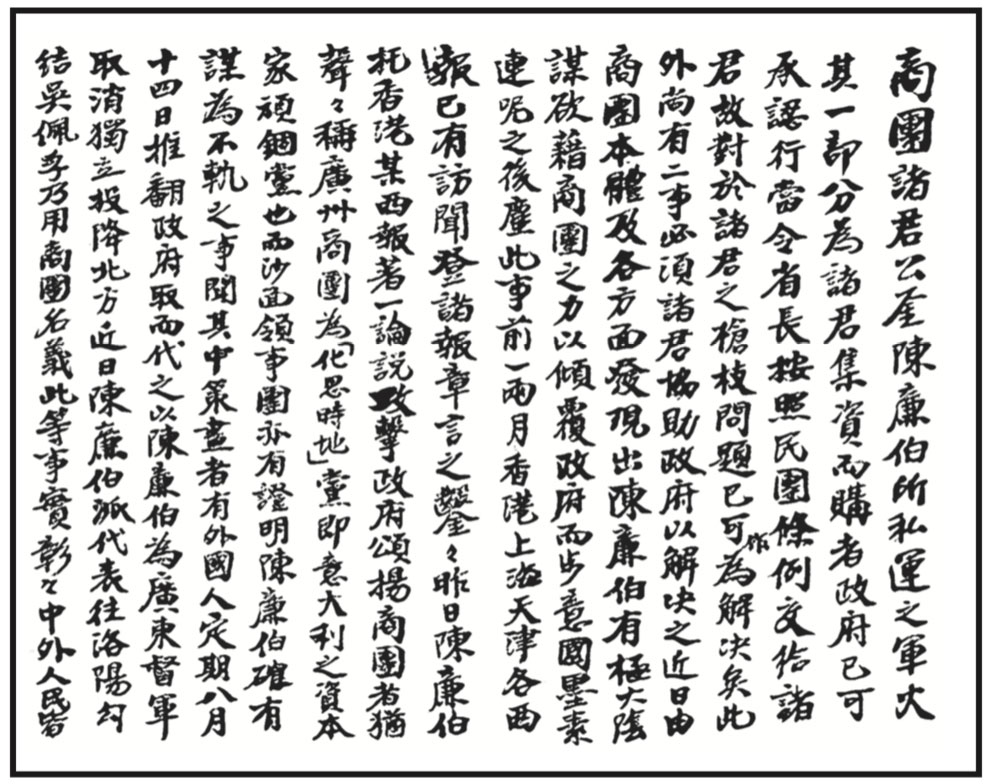 商團諸君公鑒陳廉伯所私運之軍火
其一部分為諸君集資而購者政府已可
承認行當令省長按照民團條例交給諸
君故對於諸君之槍枝問題已可作為解決矣此
外尚有二事必須諸君協助政府以解決之近日由
商團本體及各方面發現出陳廉伯有極大陰
謀欲藉商團之力以傾覆政府而步意國墨素
連呢之後塵此事前一兩月香港上海天津各西
報已有訪聞登諸報章言之鑿々昨日陳廉伯
托香港某西報著一論說攻擊政府頌揚商團者猶
聲々稱廣州商團為「化思時地」黨即意大利之資本
家頑錮黨也而沙面領事團亦有證明陳廉伯確有
謀為不軌之事聞其中策畫者有外國人定期八月
十四日推翻政府取而代之以陳廉伯為廣東督軍
取消獨立投降北方近日陳廉伯派代表往洛陽勾
結吳佩孚乃用商團名義此等事實彰々中外人民皆